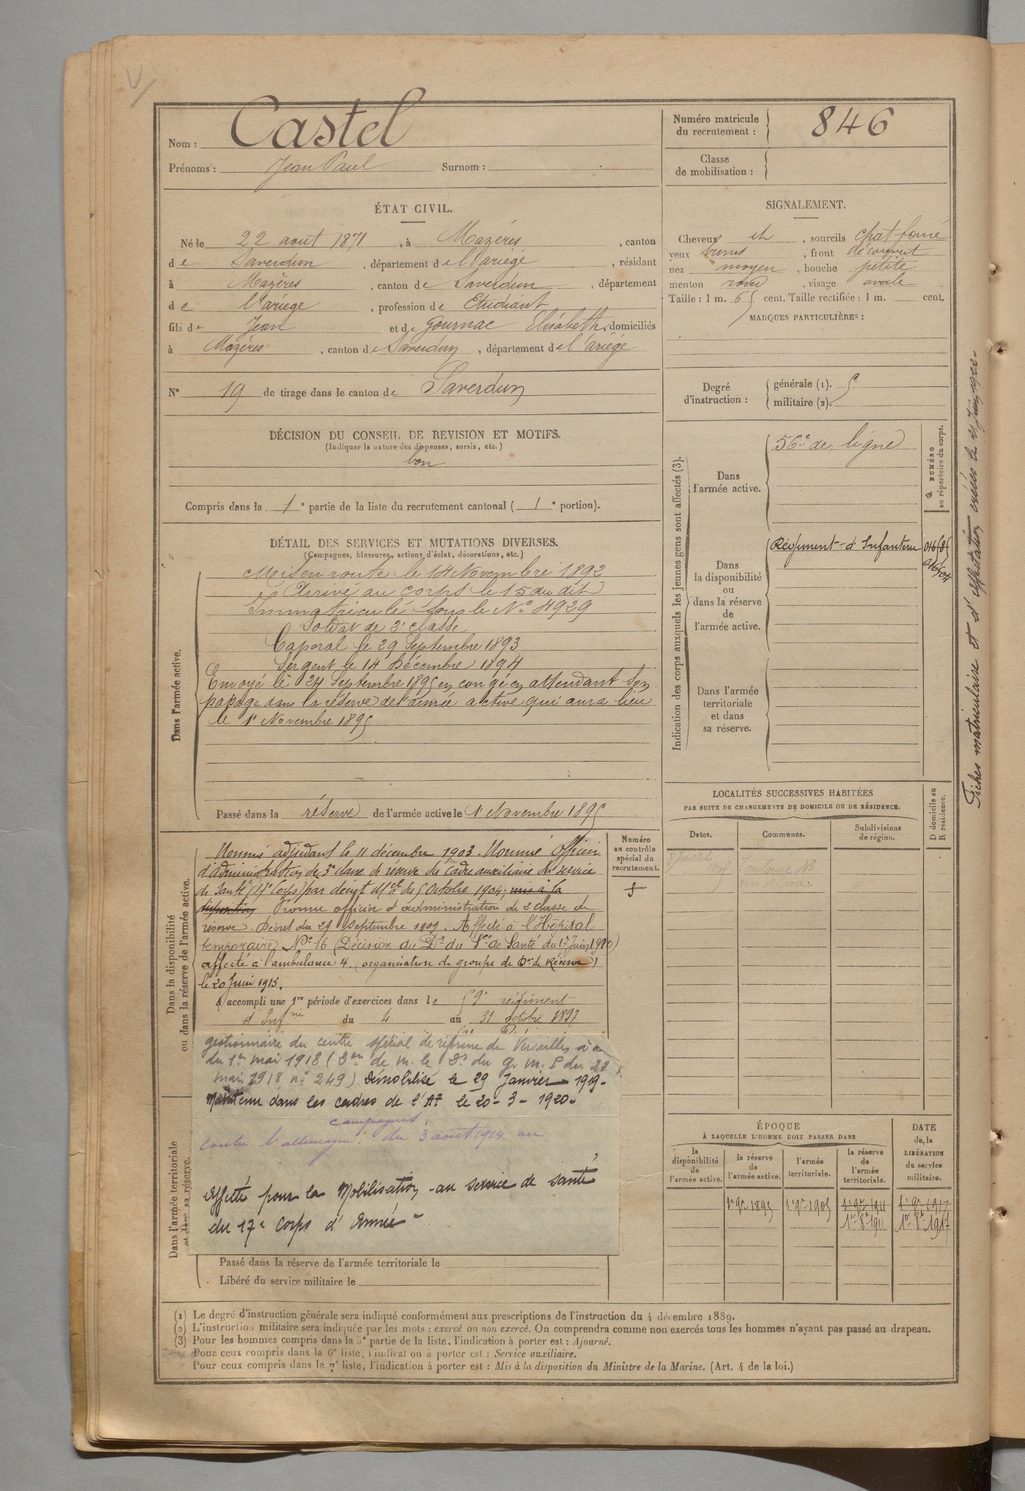 Castel
Nom :
Prénoms : Jean Paul Surnom :
ÉTAT CIVIL.
Né le 22 aout 1871, à Mazéres, canton
de Saverdun, département de l'Ariège, résidant
à Mazères, canton de Saverdun, département
de l'ariège, profession de Etudiant
fils de Jean et de Gournac Elisabeth, domiciliés
à Mazères, canton de Saverdun, département de l'ariège
N° 19 de tirage dans le canton de Saverdun
DÉCISION DU CONSEIL DE REVISION ET MOTIFS.
(Indiquer la nature des dispenses, sursis, etc.)
bon
Compris dans la 1e partie de la liste du recrutement cantonal ( 1e portion).
DÉTAIL DES SERVICES ET MUTATIONS DIVERSES.
(Campagnes, blessures, actions d'éclat, décorations, etc.)
Dans l'armée active.
Mis en route le 14 Novembre 1892
Arrivé au corps le 15 du dit
Immatriculé sous le N° 4929
Soldat de 2e classe
Caporal le 29 Septembre 1893
Sergent le 14 Décembre 1894
Envoyé le 24 Septembre 1895 en congé en attendant son
passage dans la réserve de l'armée active qui aura lieu
le 1 Novembre 1895
Passé dans la réserve de l'armée active le 1 Novembre 1895
Dans la disponibilité
ou dans la réserve de l'armée active.
Numéro
au contrôle
spécial du
recrutement.
Nommé adjudant le 11 décembre 1903. Nommé officier
d'administration de 3e classe de réserve du cadre auxiliaire du service
de Santé (17e Corps) par décret du 5 Octobre 1904; mis à la
Promu officier d'administration de 2e classe de
réserve Décret du 29 septembre 1909. Affecté à l'Hôpital
temporaire N° 16 (Décision du Dr du Sce de Santé du 1er Juin 1910)
affecté à l'ambulance 4 (organisation de groupe de Don de Réserve)
le 20 Juin 1913.
A accompli une 1re période d'exercices dans le 59e régiment
d'Infrie du 4 au 31 octobre 1897
gestionnaire du centre spécial de réforme de Versailles
du 1er mai 1918 (Don de M. le Ds du G. M. P du 28
mai 1918 n° 249) Démobilisé le 29 Janvier 1919.
Maintenu dans les cadres de l'AT le 20-3-1920.
campagnes.
Contre l'allemagne: du 3 août 1914 au
Affecté pour la Mobilisation au service de santé
du 17e Corps d'Armée
Dans l'armée territoriale
et dans sa réserve.
Passé dans la réserve de l'armée territoriale le
Libéré du service militaire le
Numéro matricule
du recrutement : 846
Classe
de mobilisation :
SIGNALEMENT.
Cheveux et, sourcils chat. foncé
yeux bruns, front découvert
nez moyen, bouche petite
menton rond, visage ovale
Taille : 1 m. 65 cent. Taille rectifiée : 1 m. cent.
MARQUES PARTICULIÈRES :
Degré
d'instruction :
générale (1). 5
militaire (2).
Indication des corps auxquels les jeunes gens sont affectés (3).
NUMÉRO
au répertoire du corps.
Dans
l'armée active.
56e de ligne
Dans
la disponibilité
ou
dans la réserve
de
l'armée active.
Régiment d'Infanterie
Dans l'armée
territoriale
et dans
sa réserve.
LOCALITÉS SUCCESSIVES HABITÉES
PAR SUITE DE CHANGEMENTS DE DOMICILE OU DE RÉSIDENCE.
Dates.
Communes.
Subdivisions
de région.
D domicile ou
R résidence.
ÉPOQUE
À LAQUELLE L'HOMME DOIT PASSER DANS
DATE
de la
LIBÉRATION
du service
militaire.
la
disponibilité
de
l'armée active.
la réserve
de
l'armée active.
l'armée
territoriale.
la réserve
de
l'armée
territoriale.
1er 9e 1895
1er 9e 1905
1er 9e 1911
1er 9e 1917
1er 8e 1911
1er 8e 1917
Fiches matriculaire et d'affectation créées le
(1) Le degré d'instruction générale sera indiqué conformément aux prescriptions de l'instruction du 4 décembre 1889.
(2) L'instruction militaire sera indiquée par les mots : exercé ou non exercé. On comprendra comme non exercés tous les hommes n'ayant pas passé au drapeau.
(3) Pour les hommes compris dans la 5e partie de la liste, l'indication à porter est : Ajourné.
Pour ceux compris dans la 6e liste, l'indication à porter est : Service auxiliaire.
Pour ceux compris dans la 7e liste, l'indication à porter est : Mis à la disposition du Ministre de la Marine. (Art. 4 de la loi.)